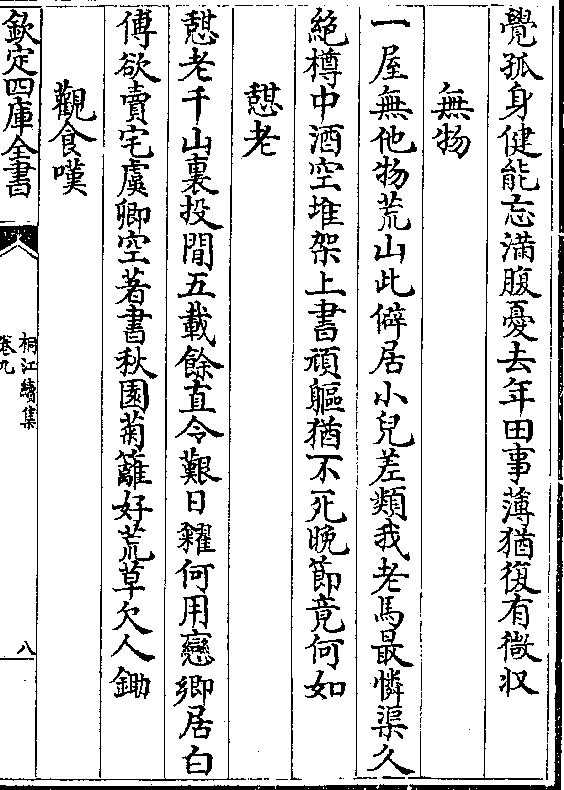 覺孤身健能忘滿腹憂去年田事薄猶復有微収
無物
一屋無他物荒山此僻居小兒差類我老馬最憐渠久
絶樽中酒空堆架上書頑軀猶不死晩節竟何如
憇老
憇老千山裏投閒五載餘直令艱日糴何用戀鄉居白
傅欲賣宅虞卿空著書秋園菊籬好荒草欠人鋤
觀食嘆
欽定四庫全書
桐江續集
卷九
八